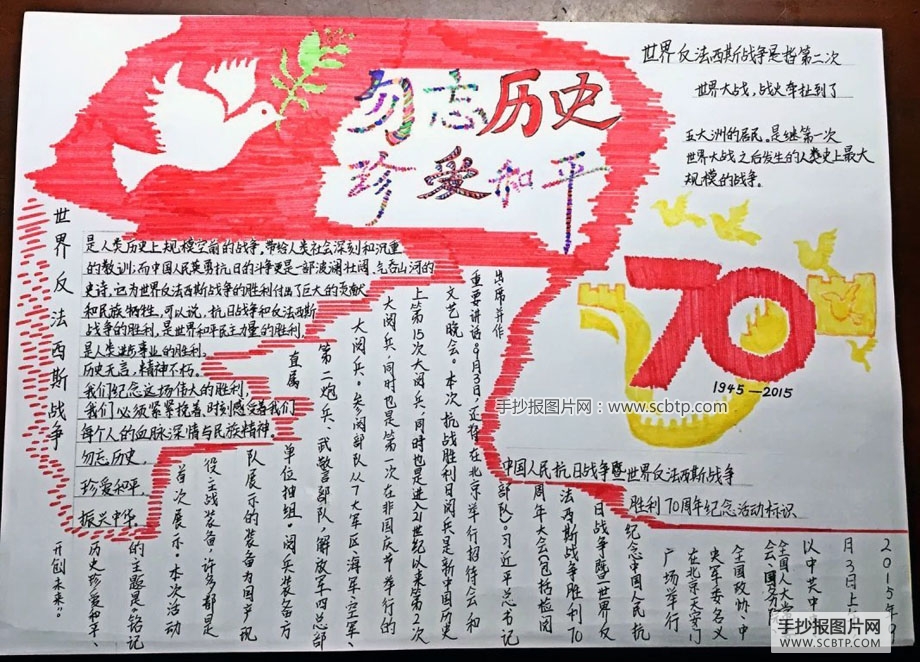 勿忘历史
珍爱和平
世界反法西斯战争是指第二次
世界大战,战史牵扯到了
五大洲的居民。是继第一次
世界大战之后发生的人类史上最大
规模的战争。
世界反法西斯战争
是人类历史上规模空前的战争,带给人类社会深刻和沉重
的教训;而中国人民英勇抗日的斗争更是一部波澜壮阔、气吞山河的
史诗,它为世界反法西斯战争的胜利付出了巨大的贡献
和民族牺牲。可以说,抗日战争和反法西斯
战争的胜利,是世界和平民主力量的胜利,
是人类进步事业的胜利,
历史无言,精神不朽。
我们纪念这场伟大的胜利,
我们必须紧紧挽着,时刻感受着我们
每个人的血脉深情与民族精神。
勿忘历史,
珍爱和平,
振兴中华。
70
1945—2015
手抄报图片网:www.scbtp.com
中国人民抗日战争暨世界反法西斯战争
胜利70周年纪念活动标识
2015年9
月3日上
以中共中
全国人大常
会、国务院
全国政协、中
央军委名义
在北京天安门
广场举行
纪念中国人民抗
日战争暨世界反
法西斯战争胜利70
周年大会(包括检阅
部队)。习近平总书记
出席并作
重要讲话9月3日,还将在北京举行招待会和
文艺晚会。本次抗战胜利日阅兵是新中国历史
上第15次大阅兵,同时也是进入21世纪以来第2次
大阅兵,同时也是第一次在非国庆节举行的
大阅兵。参阅部队从7大军区、海军、空军、
第二炮兵、武警部队、解放军四总部
直属
单位抽组。阅兵装备方
队展示的装备为国产现
役主战装备,许多都是
首次展示。本次活动
的主题是“铭记
历史珍爱和平、
开创未来”。
手抄报图片网
WWW.SCBTP.COM